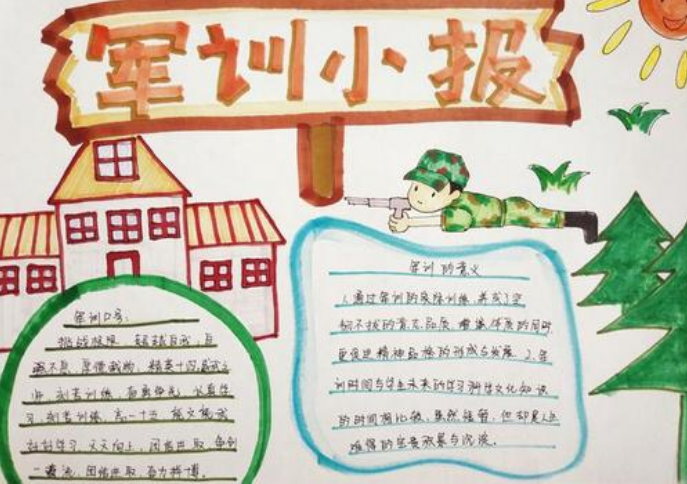 军训小报
军训口号:
挑战极限 超越自我 自
强不息 厚德载物 精英十四
刻苦训练
习 刻苦训练 高一十五 能文能武
好好学习 天天向上 团结进取 争创
一流 团结进取 奋力拼搏。
军训的意义
1.通过军训的实际训练,养成了坚
韧不拔的意志品质,增强体质的同时,
更促进精神品格的形成与发展 2.军
训时间与学生未来的学习科学文化知识
的时间相比较,虽然短暂,但却是人生
难得的宝贵效果与沉淀。